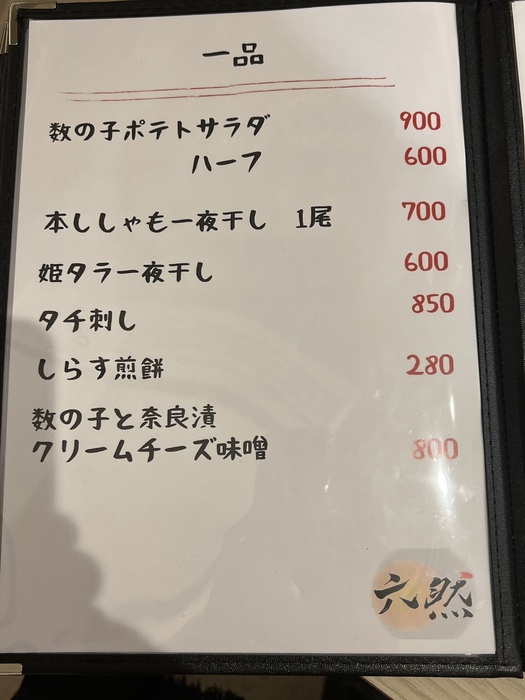 一品
数の子ポテトサラダ 900
ハーフ 600
本ししゃも一夜干し 1尾 700
姫タラ一夜干し 600
タチ刺し 850
しらす煎餅 280
数の子と奈良漬
クリームチーズ味噌 800
六然